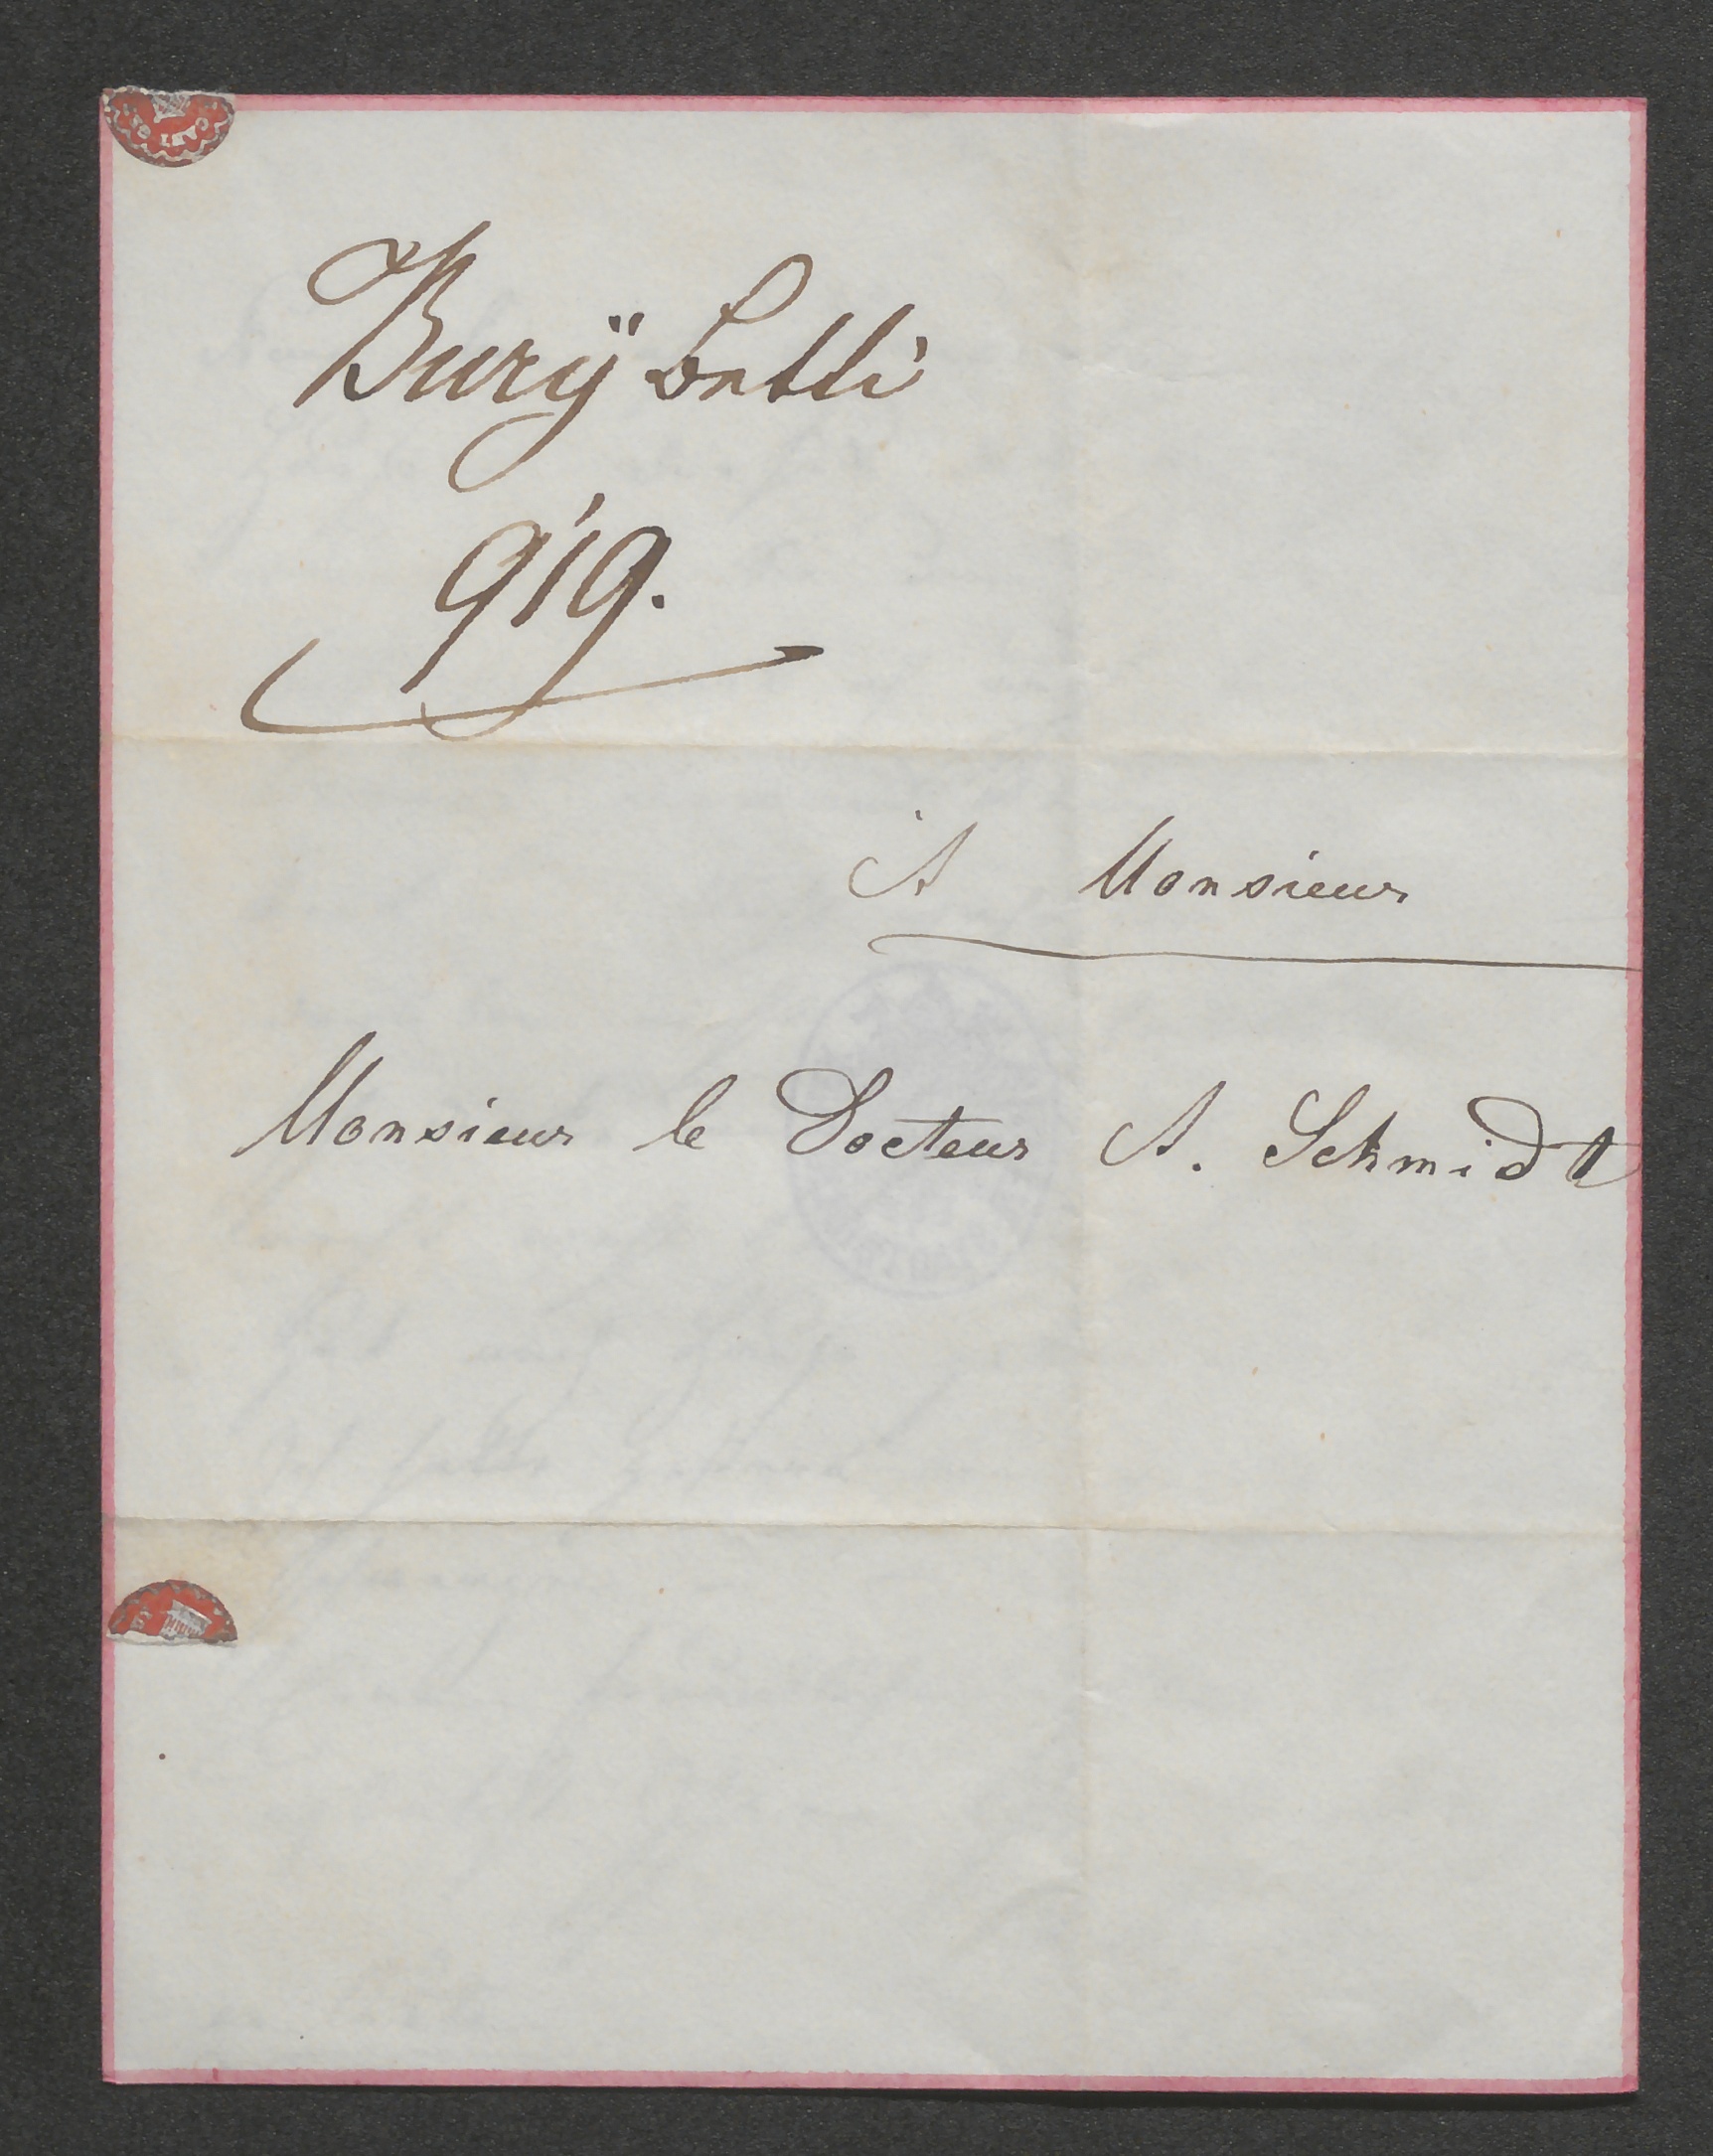 Burÿ Betti
919.
A Monsieur
Monsieur le Docteur A. Schmidt